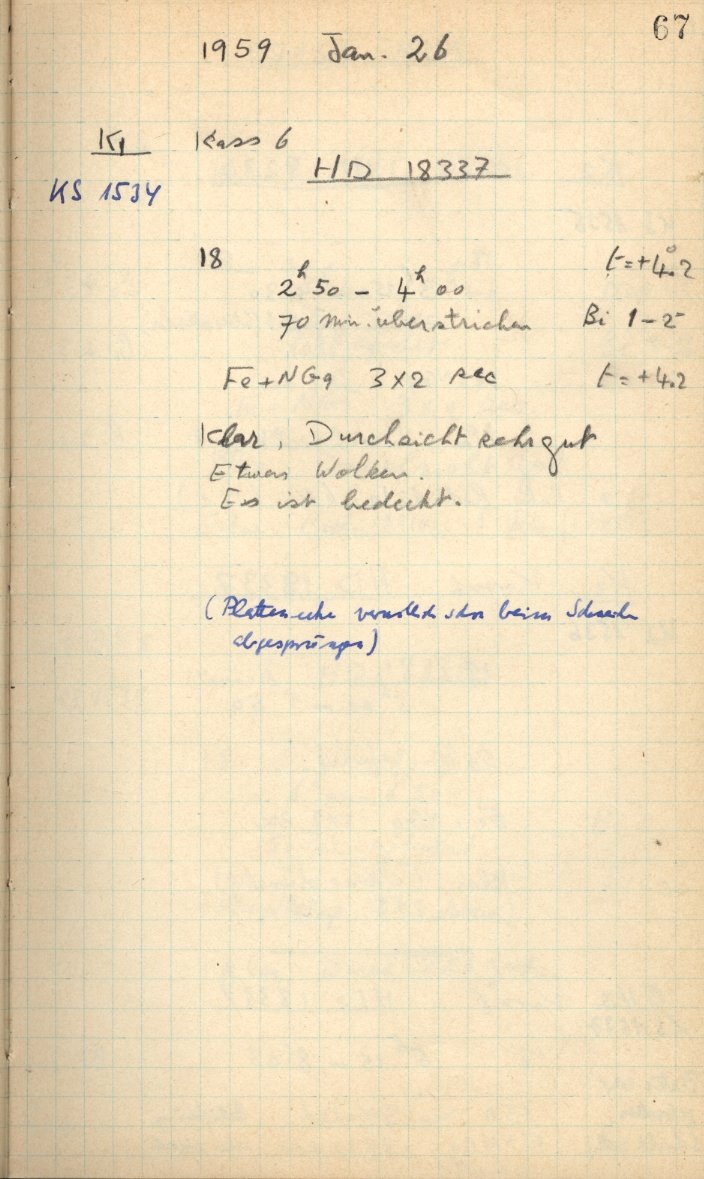 67
1959 Jan. 26
K1 Kass 6
HD 18337
KS 1534
18 t=+4.°2
2h 50 – 4h 00
70 min. überstrichen Bi 1–2
Fe+NGa 3x2 sec t=+4.2
Klar, Durchsicht sehr gut
Etwas Wolken.
Es ist bedeckt.
(Plattenecke vermutlich schon beim Schneiden
abgesprungen)